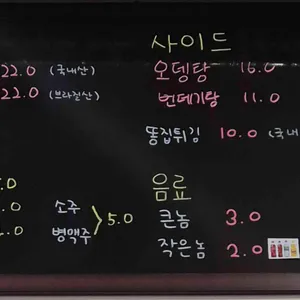 사이드
22.0 (국내산)
오뎅탕 16.0
22.0 (브라질산)
번데기탕 11.0
똥집튀김 10.0 (국내
.0
음료
.0 소주
5.0
큰놈 3.0
.0 병맥주
작은놈 2.0